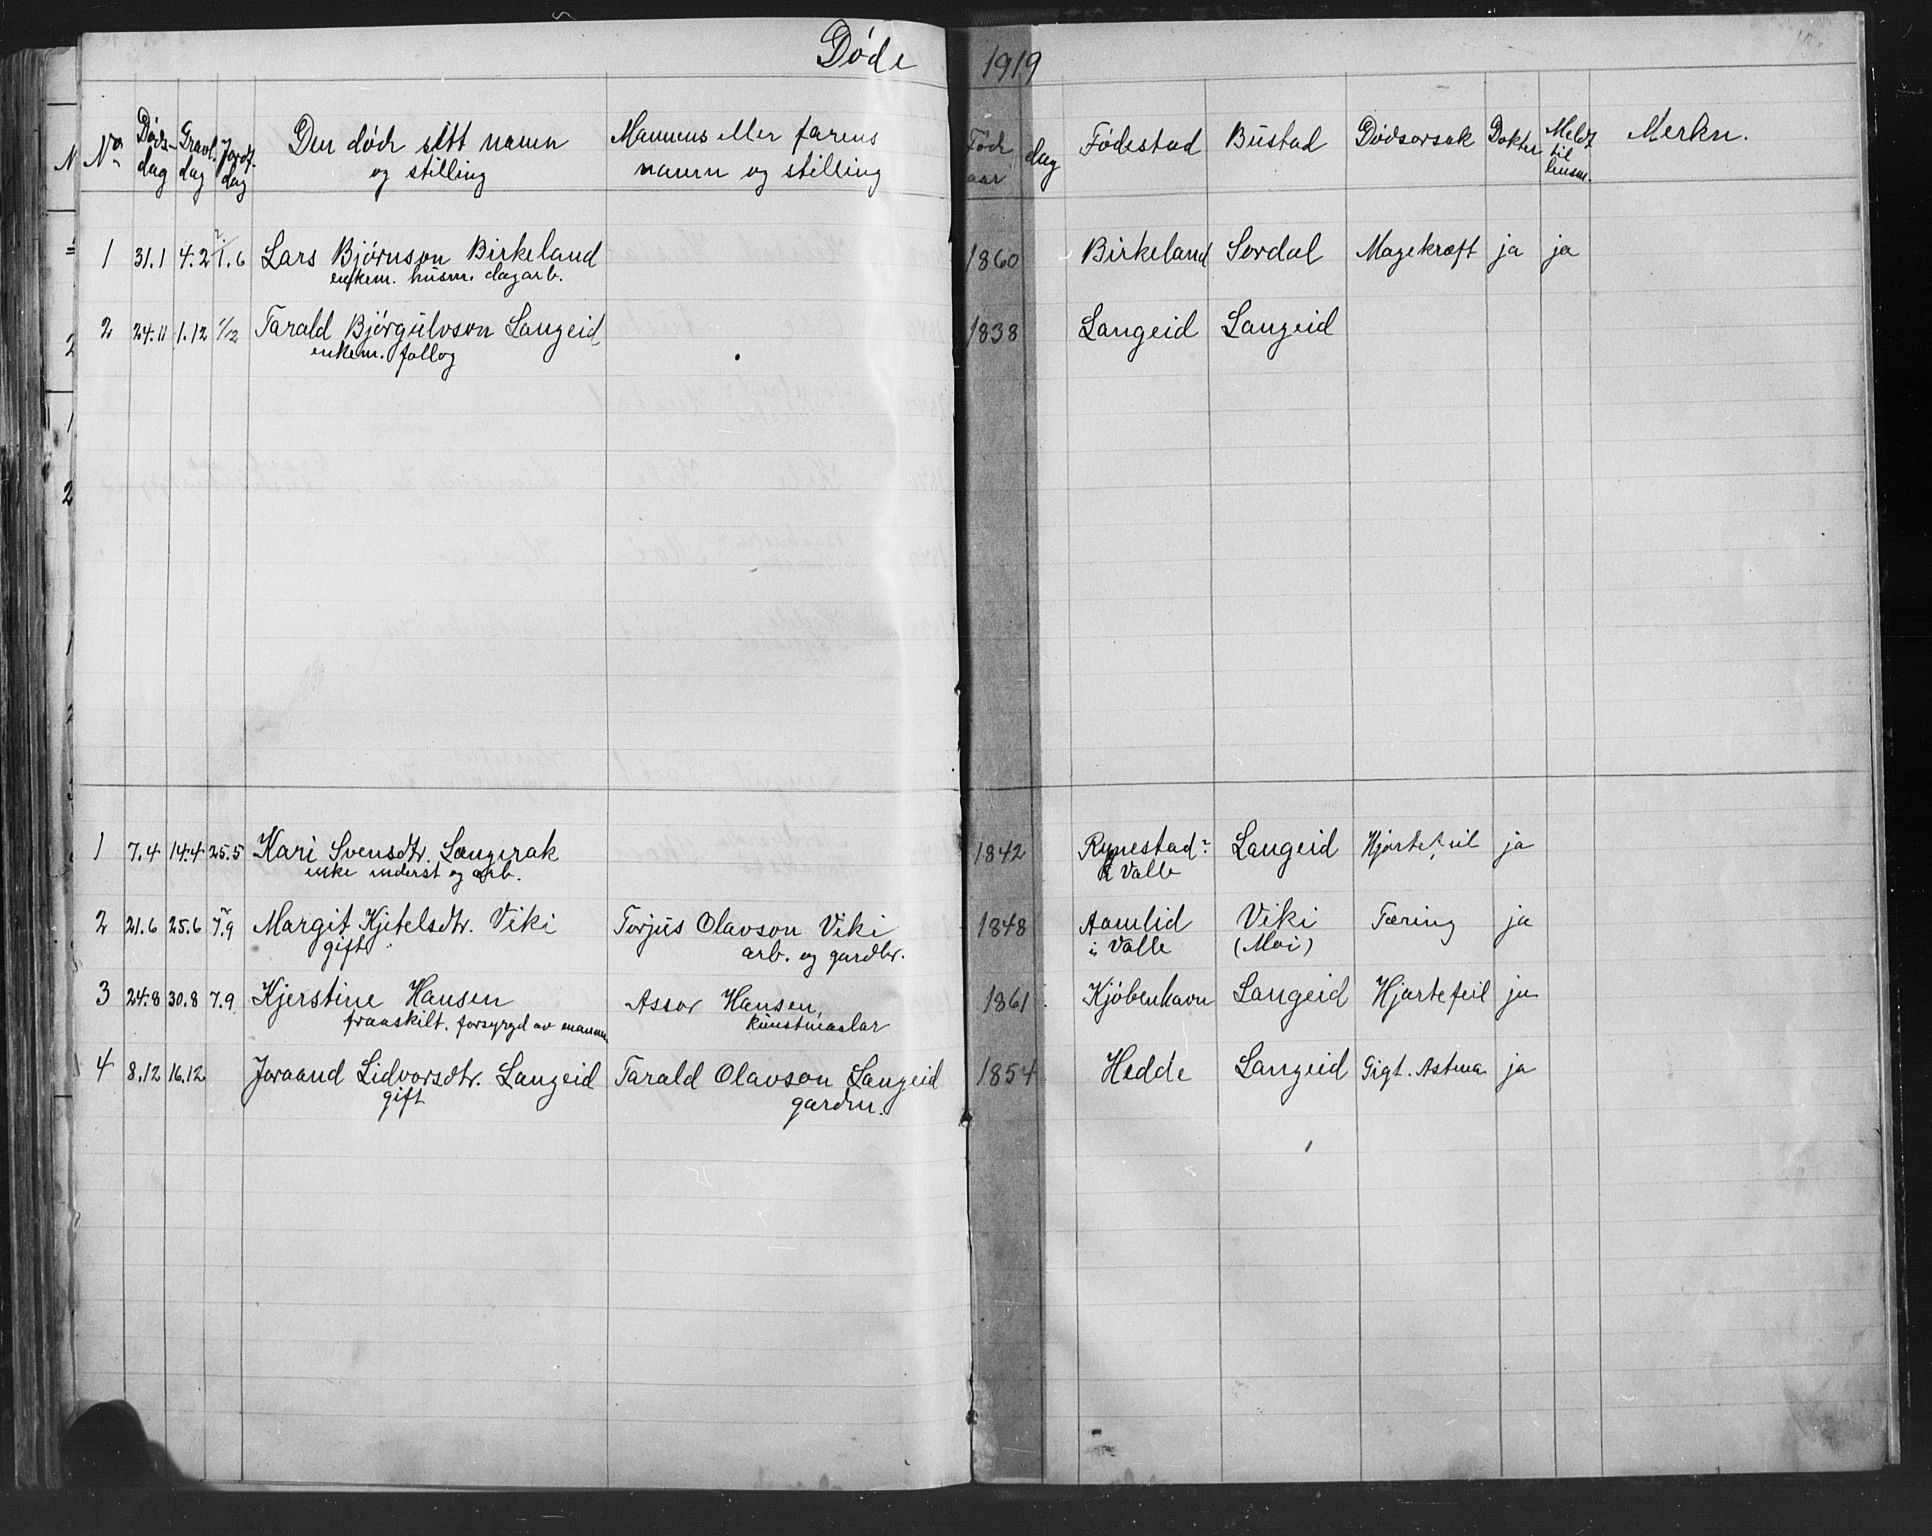 Døde 1919
No Døds-dag Gravl. dag Jordf. dag Den døde sitt namn og stilling Mannens eller farens namn og stilling Føde aar dag Fødestad Bustad Dødsorsak Dokter Meldt til lensm. Merkn.
1 31.1 4.2 1.6 Lars Bjørnson Birkeland 1860 Birkeland Sordal Magekræft ja ja
enkem. husm. dagarb.
2 24.11 1.12 1/12 Tarald Bjørgulvson Langeid 1838 Langeid Langeid
enkem. follog
1 7.4 14.4 25.5 Kari Svensdtr. Langerak 1842 Rynestad? Langeid Hjartefeil ja
enke inderst og arb. i Valle
2 21.6 25.6 7.9 Margit Kjetelsdtr. Viki Torjus Olavson Viki 1848 Aamlid Viki Tæring ja
gift arb. og gardbr. i Valle (Moi)
3 24.8 30.8 7.9 Kjerstine Hansen Assor Hansen, 1861 Kjøbenhavn Langeid Hjartefeil ja
fraaskilt. forsyrgd av mannen kunstmaalar
4 8.12 16.12 Joraand Lidvorsdtr. Langeid Tarald Olavson Langeid 1854 Hedde Langeid Gigt. Astma ja
gift gardm.